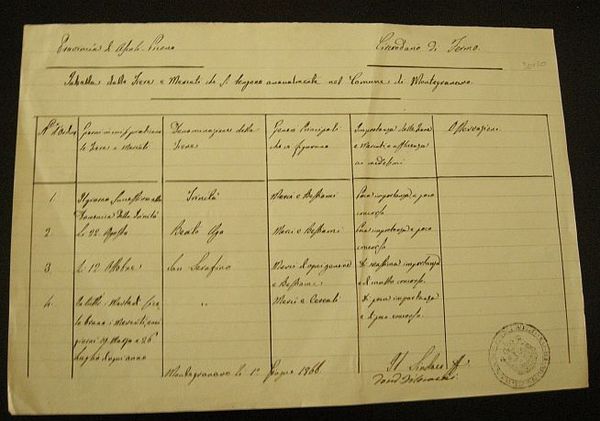 Provincia di Ascoli Piceno
Circondario di Fermo
Tabella delle Fiere e Mercati che si tengono annualmente nel Comune di Montegranaro
N° d'Ordine
Giorni in cui si praticano le Fiere e Mercati
Denominazione delle Fiere
Generi Principali che vi figurano
Importanza delle Fiere e Mercati e affluenza ai medesimi
Osservazioni
1.
Il giorno successivo alla Domenica della Trinità
Trinità
Merci e Bestiami
Poca importanza e poco concorso
2
Li 22 Agosto
Beato Ugo
Merci e Bestiami
Poca importanza e poco concorso
3
Li 12 Ottobre
San Serafino
Merci d'ogni genere e Bestiame
Di importanza e di molto concorso
4.
Tutti i Martedì
giorni 19 Marzo e 26 Luglio d'ogni anno
"
Merci e Cereali
Di poca importanza e di poco concorso
Montegranaro li 1° Giugno 1866.
Il Sindaco